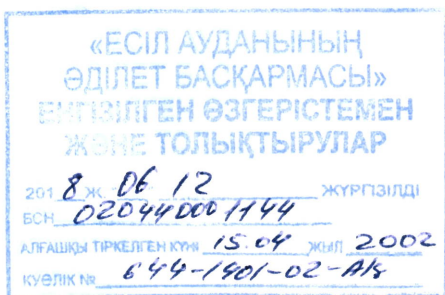 «ЕСІЛ АУДАНЫНЫҢ
ӘДІЛЕТ БАСҚАРМАСЫ»
ЕНГІЗІЛГЕН ӨЗГЕРІСТЕМЕН
ЖӘНЕ ТОЛЫҚТЫРУЛАР
2018 Ж 06 12 ЖҮРГІЗІЛДІ
БСН 020440001144
АЛҒАШҚЫ ТІРКЕЛГЕН КҮНІ 15.04 ЖЫЛ 2002
КУӘЛІК № 644-1901-02-